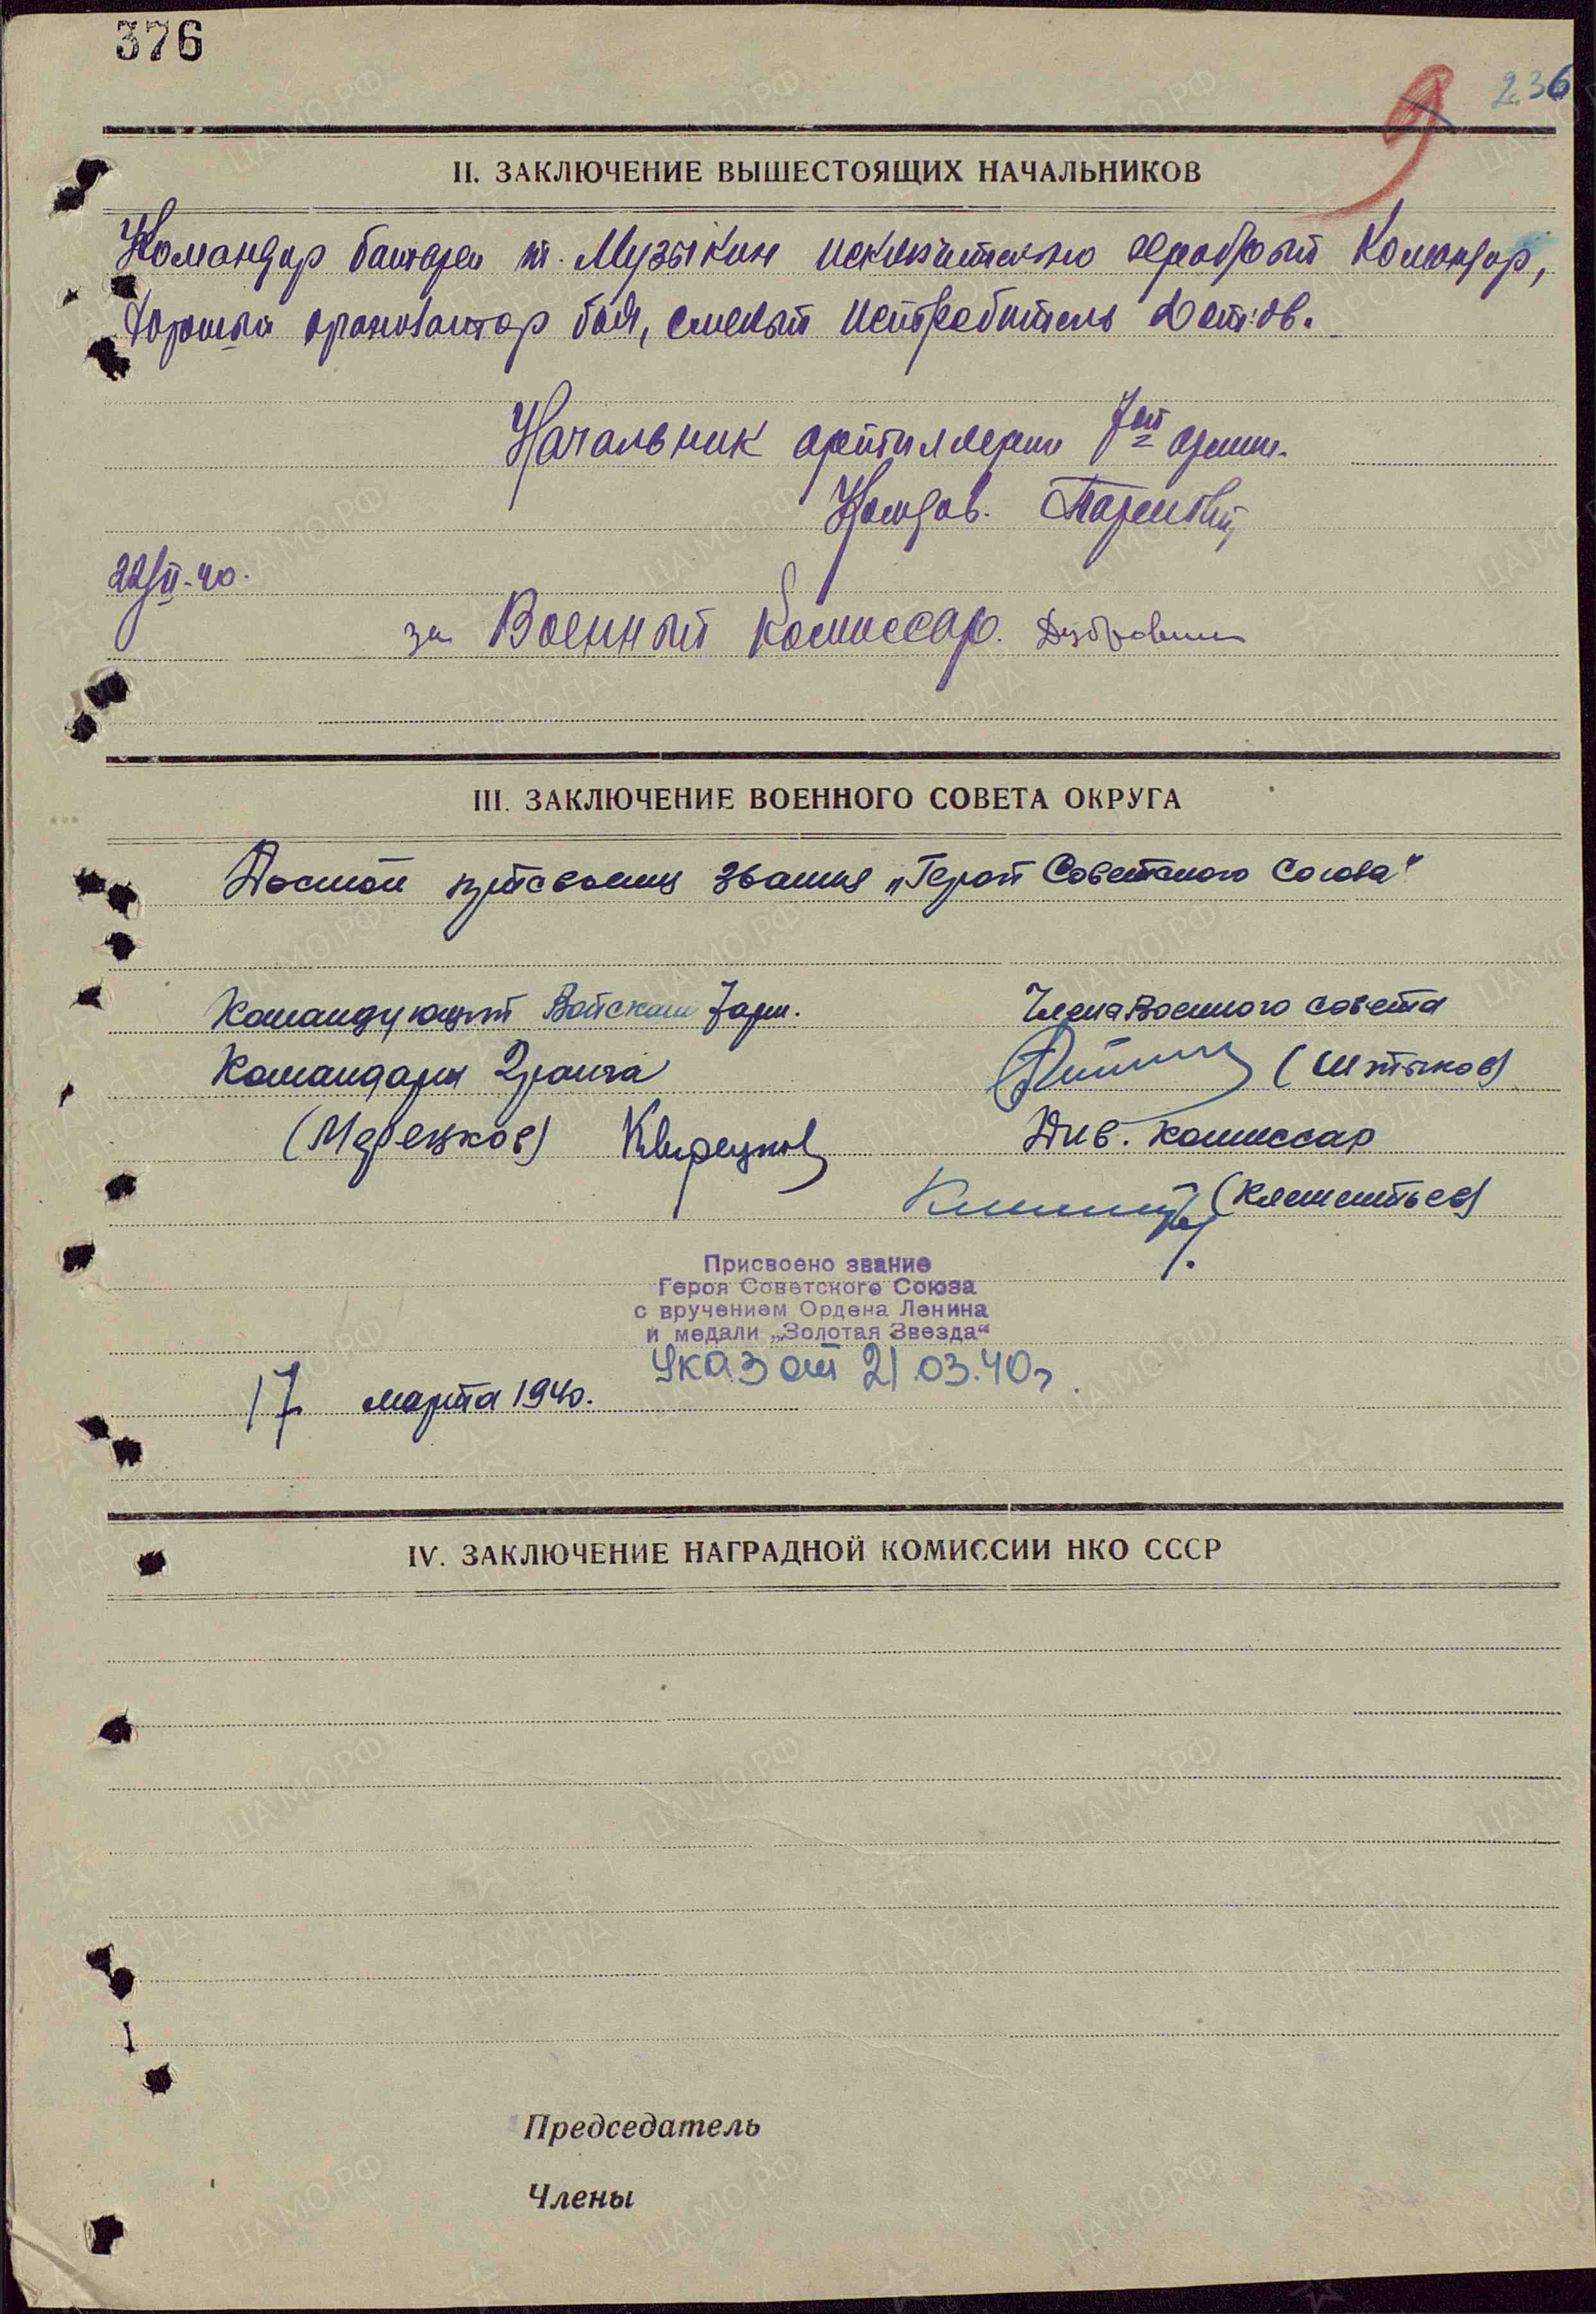 376
9 236
II. ЗАКЛЮЧЕНИЕ ВЫШЕСТОЯЩИХ НАЧАЛЬНИКОВ
Командир батареи т. Музыкин исключительно храбрый командир,
хороший организатор боя, смелый истребитель Дотов.
Начальник артиллерии 7ой армии.
Комдив. Парсегов
22/II-40.
за Военный комиссар.
III. ЗАКЛЮЧЕНИЕ ВОЕННОГО СОВЕТА ОКРУГА
Достоин присвоения звания „Герой Советского Союза"
Командующий Войсками 7 арм. Члена Военного совета
Командарм 2 ранга (Штыков)
(Мерецков) КМерецков Див. комиссар
(Клементьев)
Присвоено звание
Героя Советского Союза
с вручением Ордена Ленина
и медали „Золотая Звезда"
Указ от 21.03.40г
17 марта 1940.
IV. ЗАКЛЮЧЕНИЕ НАГРАДНОЙ КОМИССИИ НКО СССР
Председатель
Члены
ЦАМО.РФ
ПАМЯТЬ НАРОДА